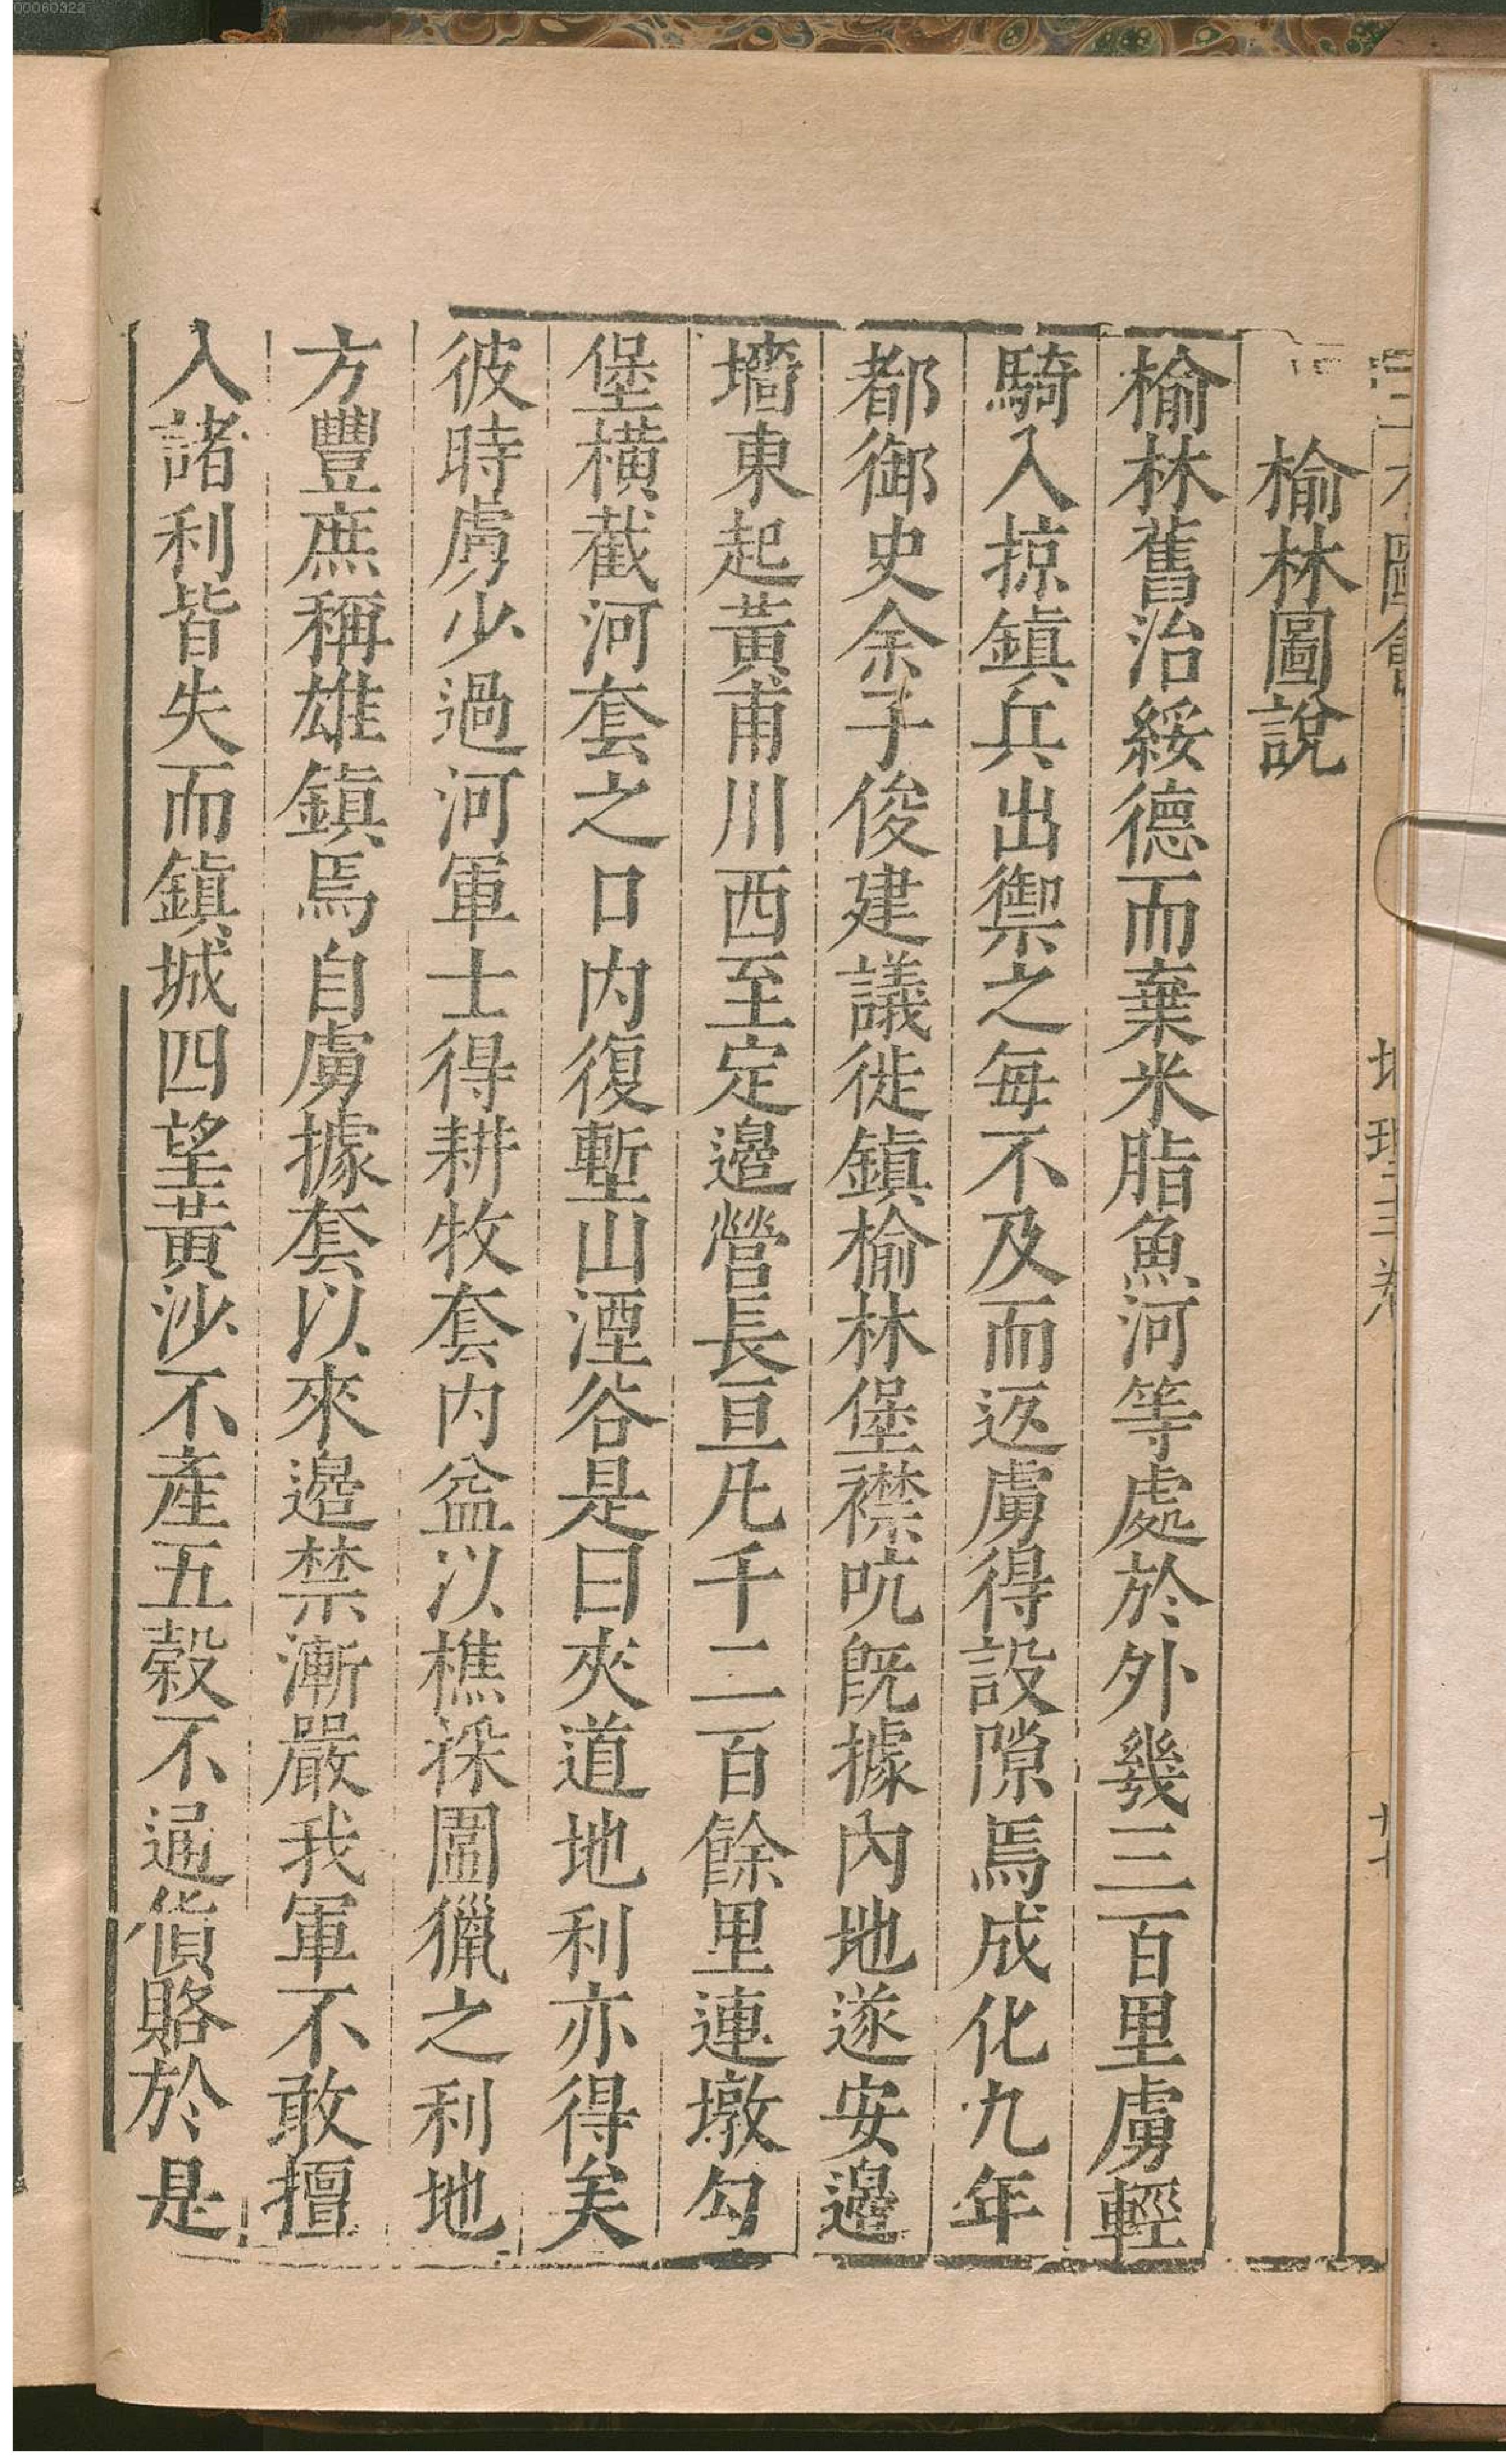 00060322
榆林圖說
榆林舊治綏德而棄米脂魚河等處於外幾三百里虜輕
騎入掠鎮兵出禦之每不及而返虜得設隙焉成化九年
都御史余子俊建議徙鎮榆林堡襟吭既據內地遂安邉
墻東起黃甫川西至定邉營長亘凡千二百餘里連墩勾
堡橫截河套之口內復塹山湮谷是曰夾道地利亦得矣
彼時虜少過河軍士得耕牧套內益以樵採圍獵之利地
方豐庶稱雄鎮焉自虜據套以來邉禁漸嚴我軍不敢擅
入諸利皆失而鎮城四望黃沙不產五穀不通貨賂於是